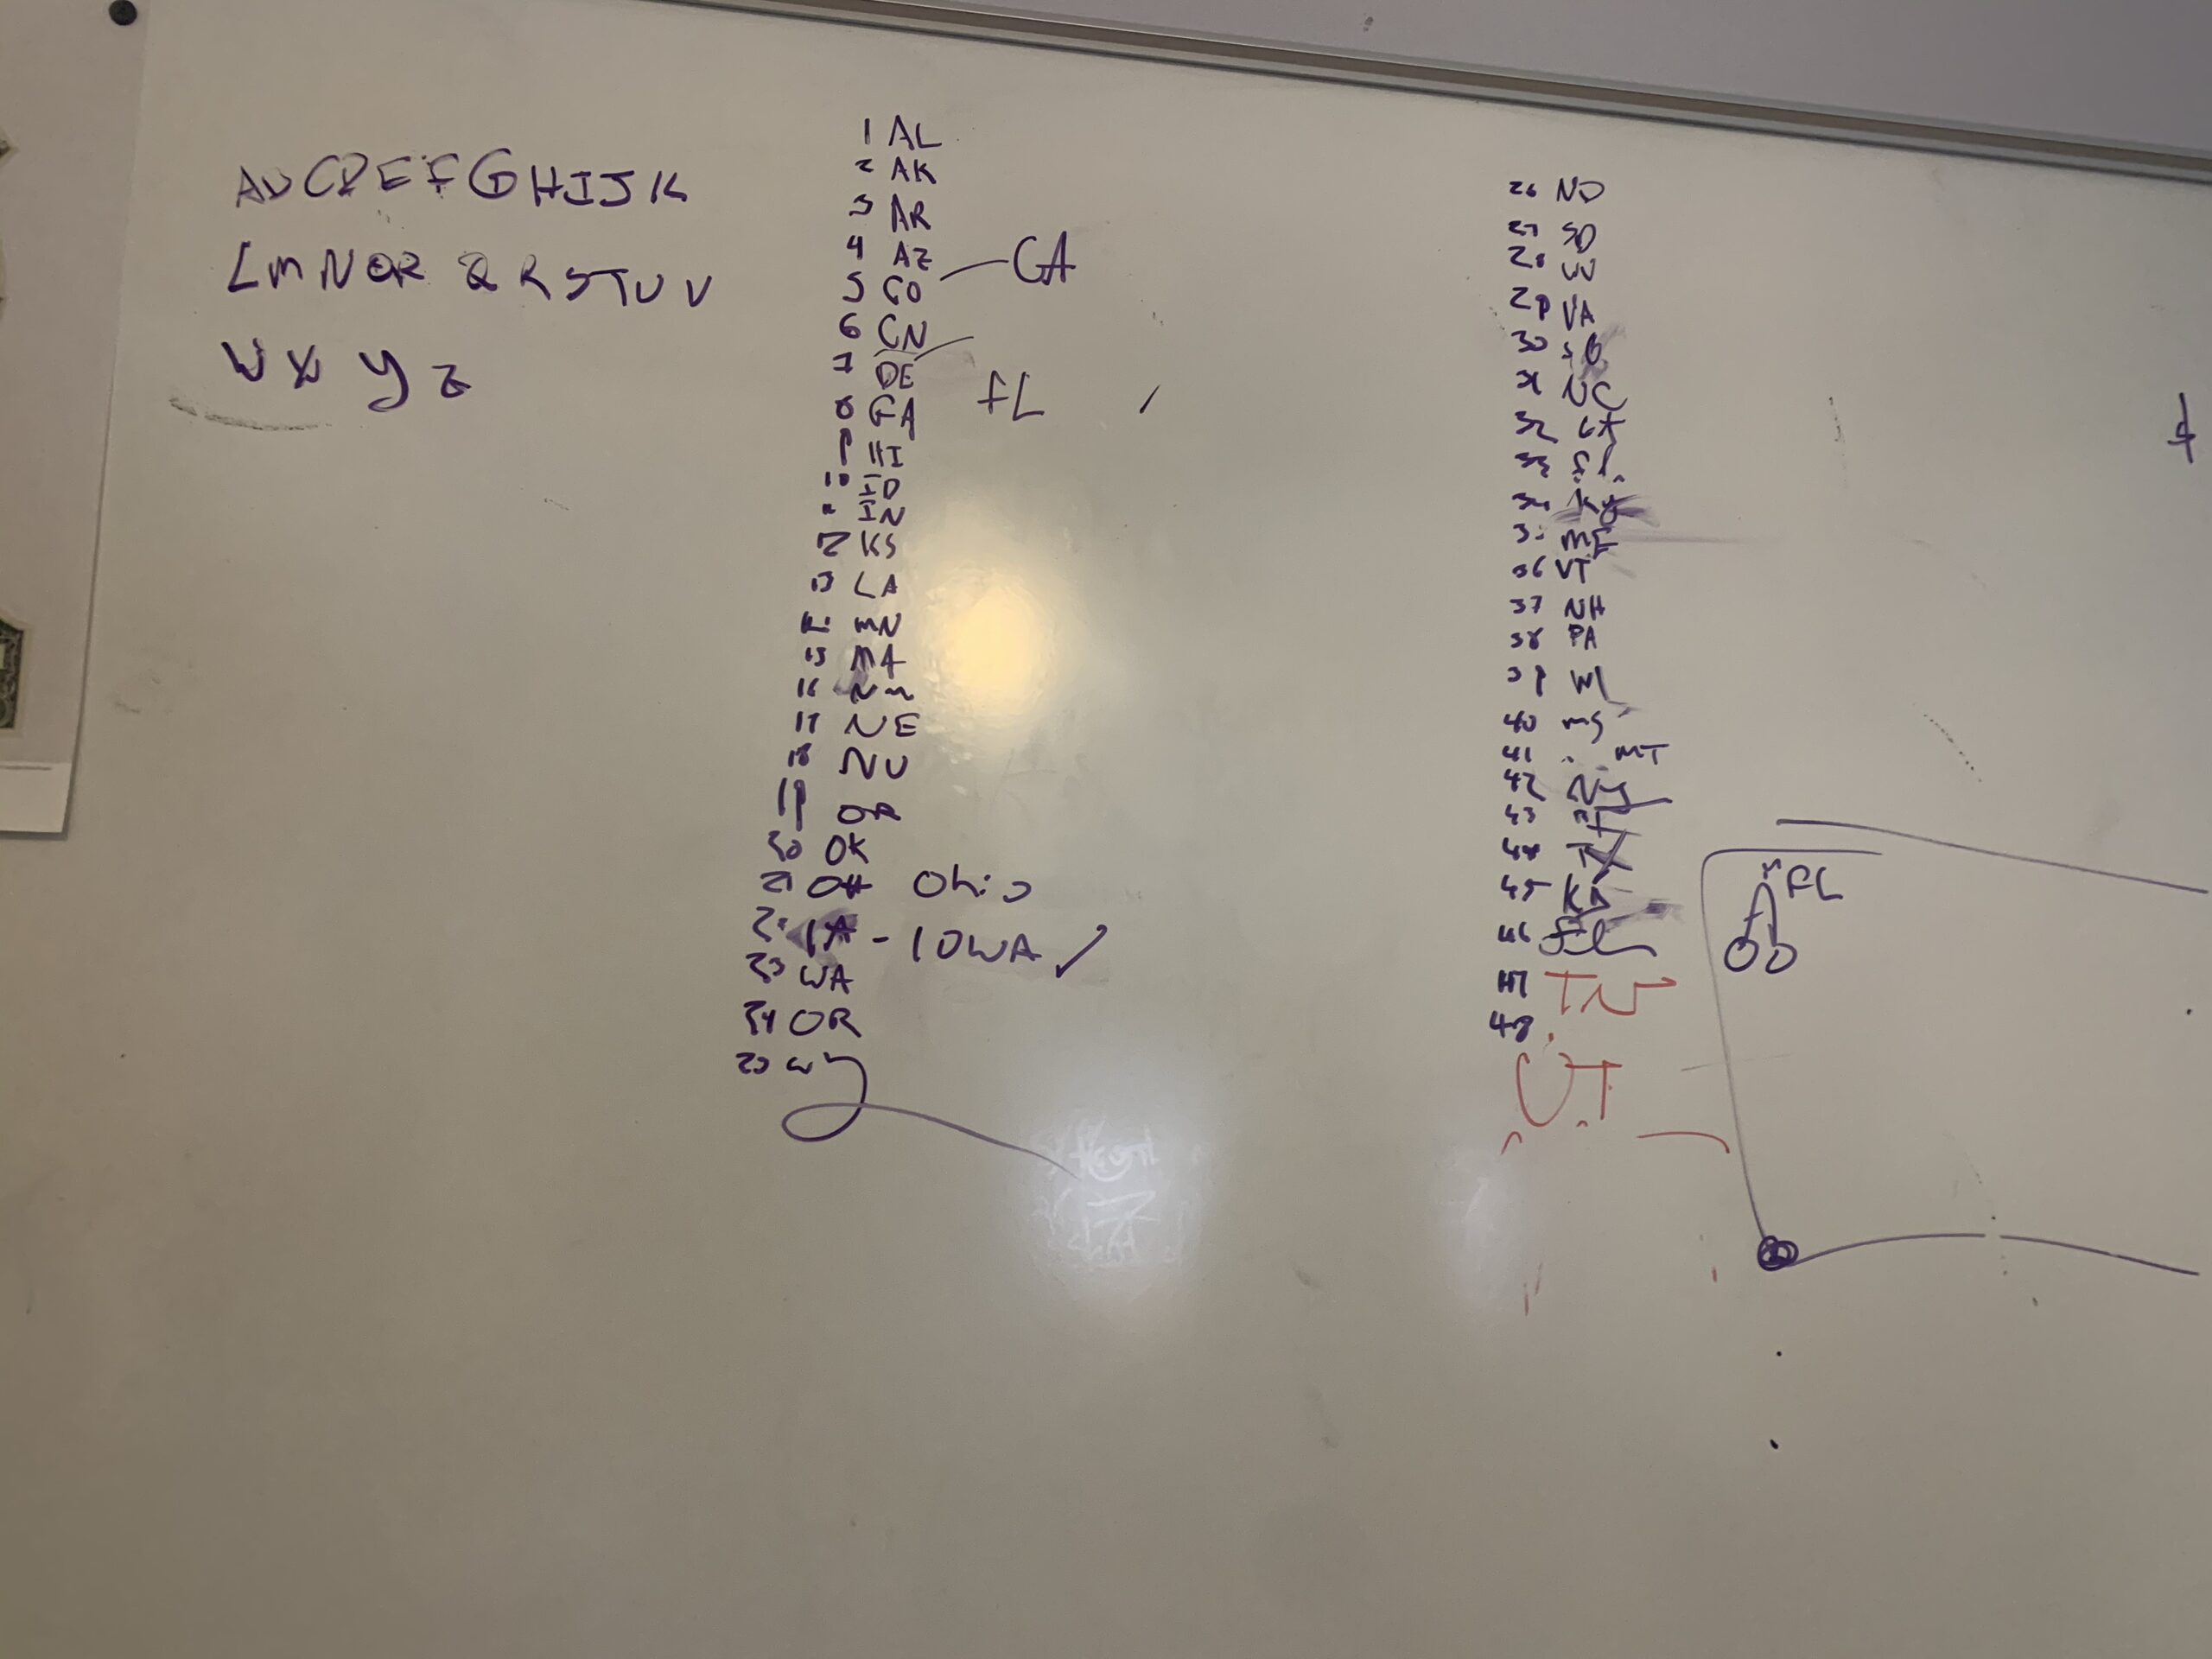 ABCDEFGHIJK
LMNOP QRSTUV
WXYZ
1 AL
2 AK
3 AR
4 AZ
5 CO CA
6 CN
7 DE
FL
8 GA
9 HI
10 ID
11 IN
12 KS
13 LA
MN
15 MA
16 NM
17 NE
18 NV
19 OR
20 OK
21 OH Ohio
IA - IOWA ✓
23 WA
24 OR
25 WY
26 ND
27 SD
28 WV
29 VA
30
31 NC
32 CT
33
34 KY
ME
36 VT
37 NH
38 PA
39 WI
40 MS
41 MT
42 NY
43
44 TX
45
46
47 TN
48
UT
FL